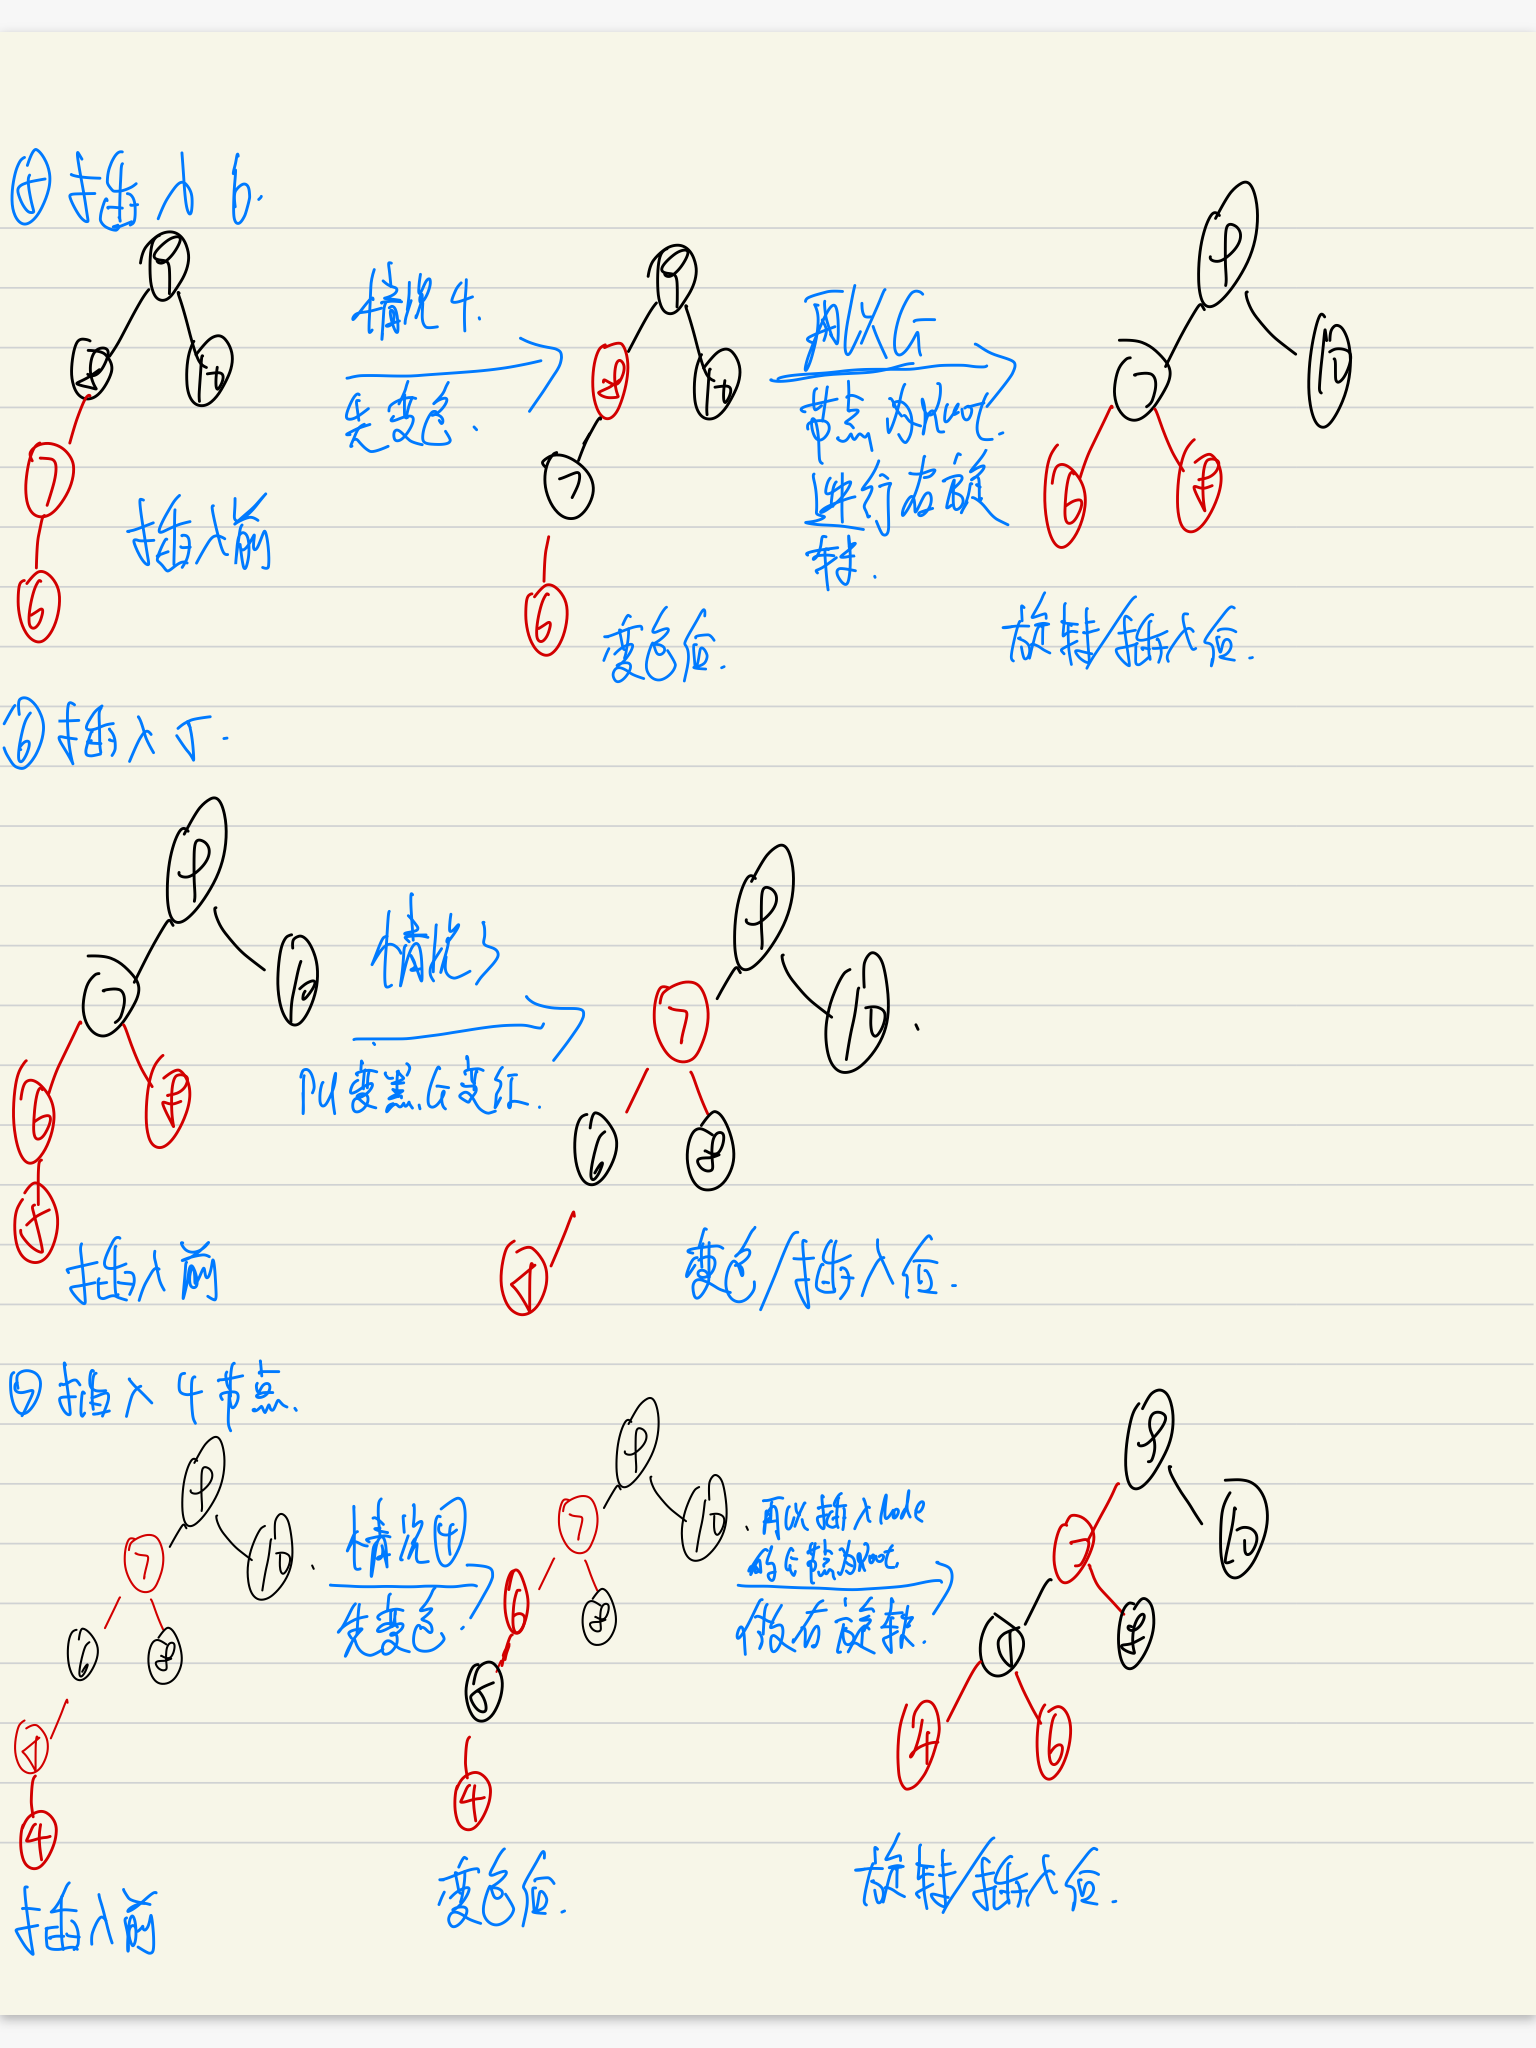 ④ 插入 6.
9
8
10
7
6
插入前
情况 4.
先变色.
9
8
10
7
6
变色后.
再以G
节点为Root.
进行右旋
转.
9
7
10
6
8
旋转/插入后.
插入 5.
9
7
10
6
8
5
插入前
情况 3
PU变黑,G变红.
9
7
10.
6
8
5
变色/插入后.
插入 4 节点.
9
7
10.
6
8
5
4
插入前
情况④
先变色.
9
7
10.
6
8
5
4
变色后.
再以插入Node
的G节点为Root
做右旋转.
9
7
10
5
8
4
6
旋转/插入后.